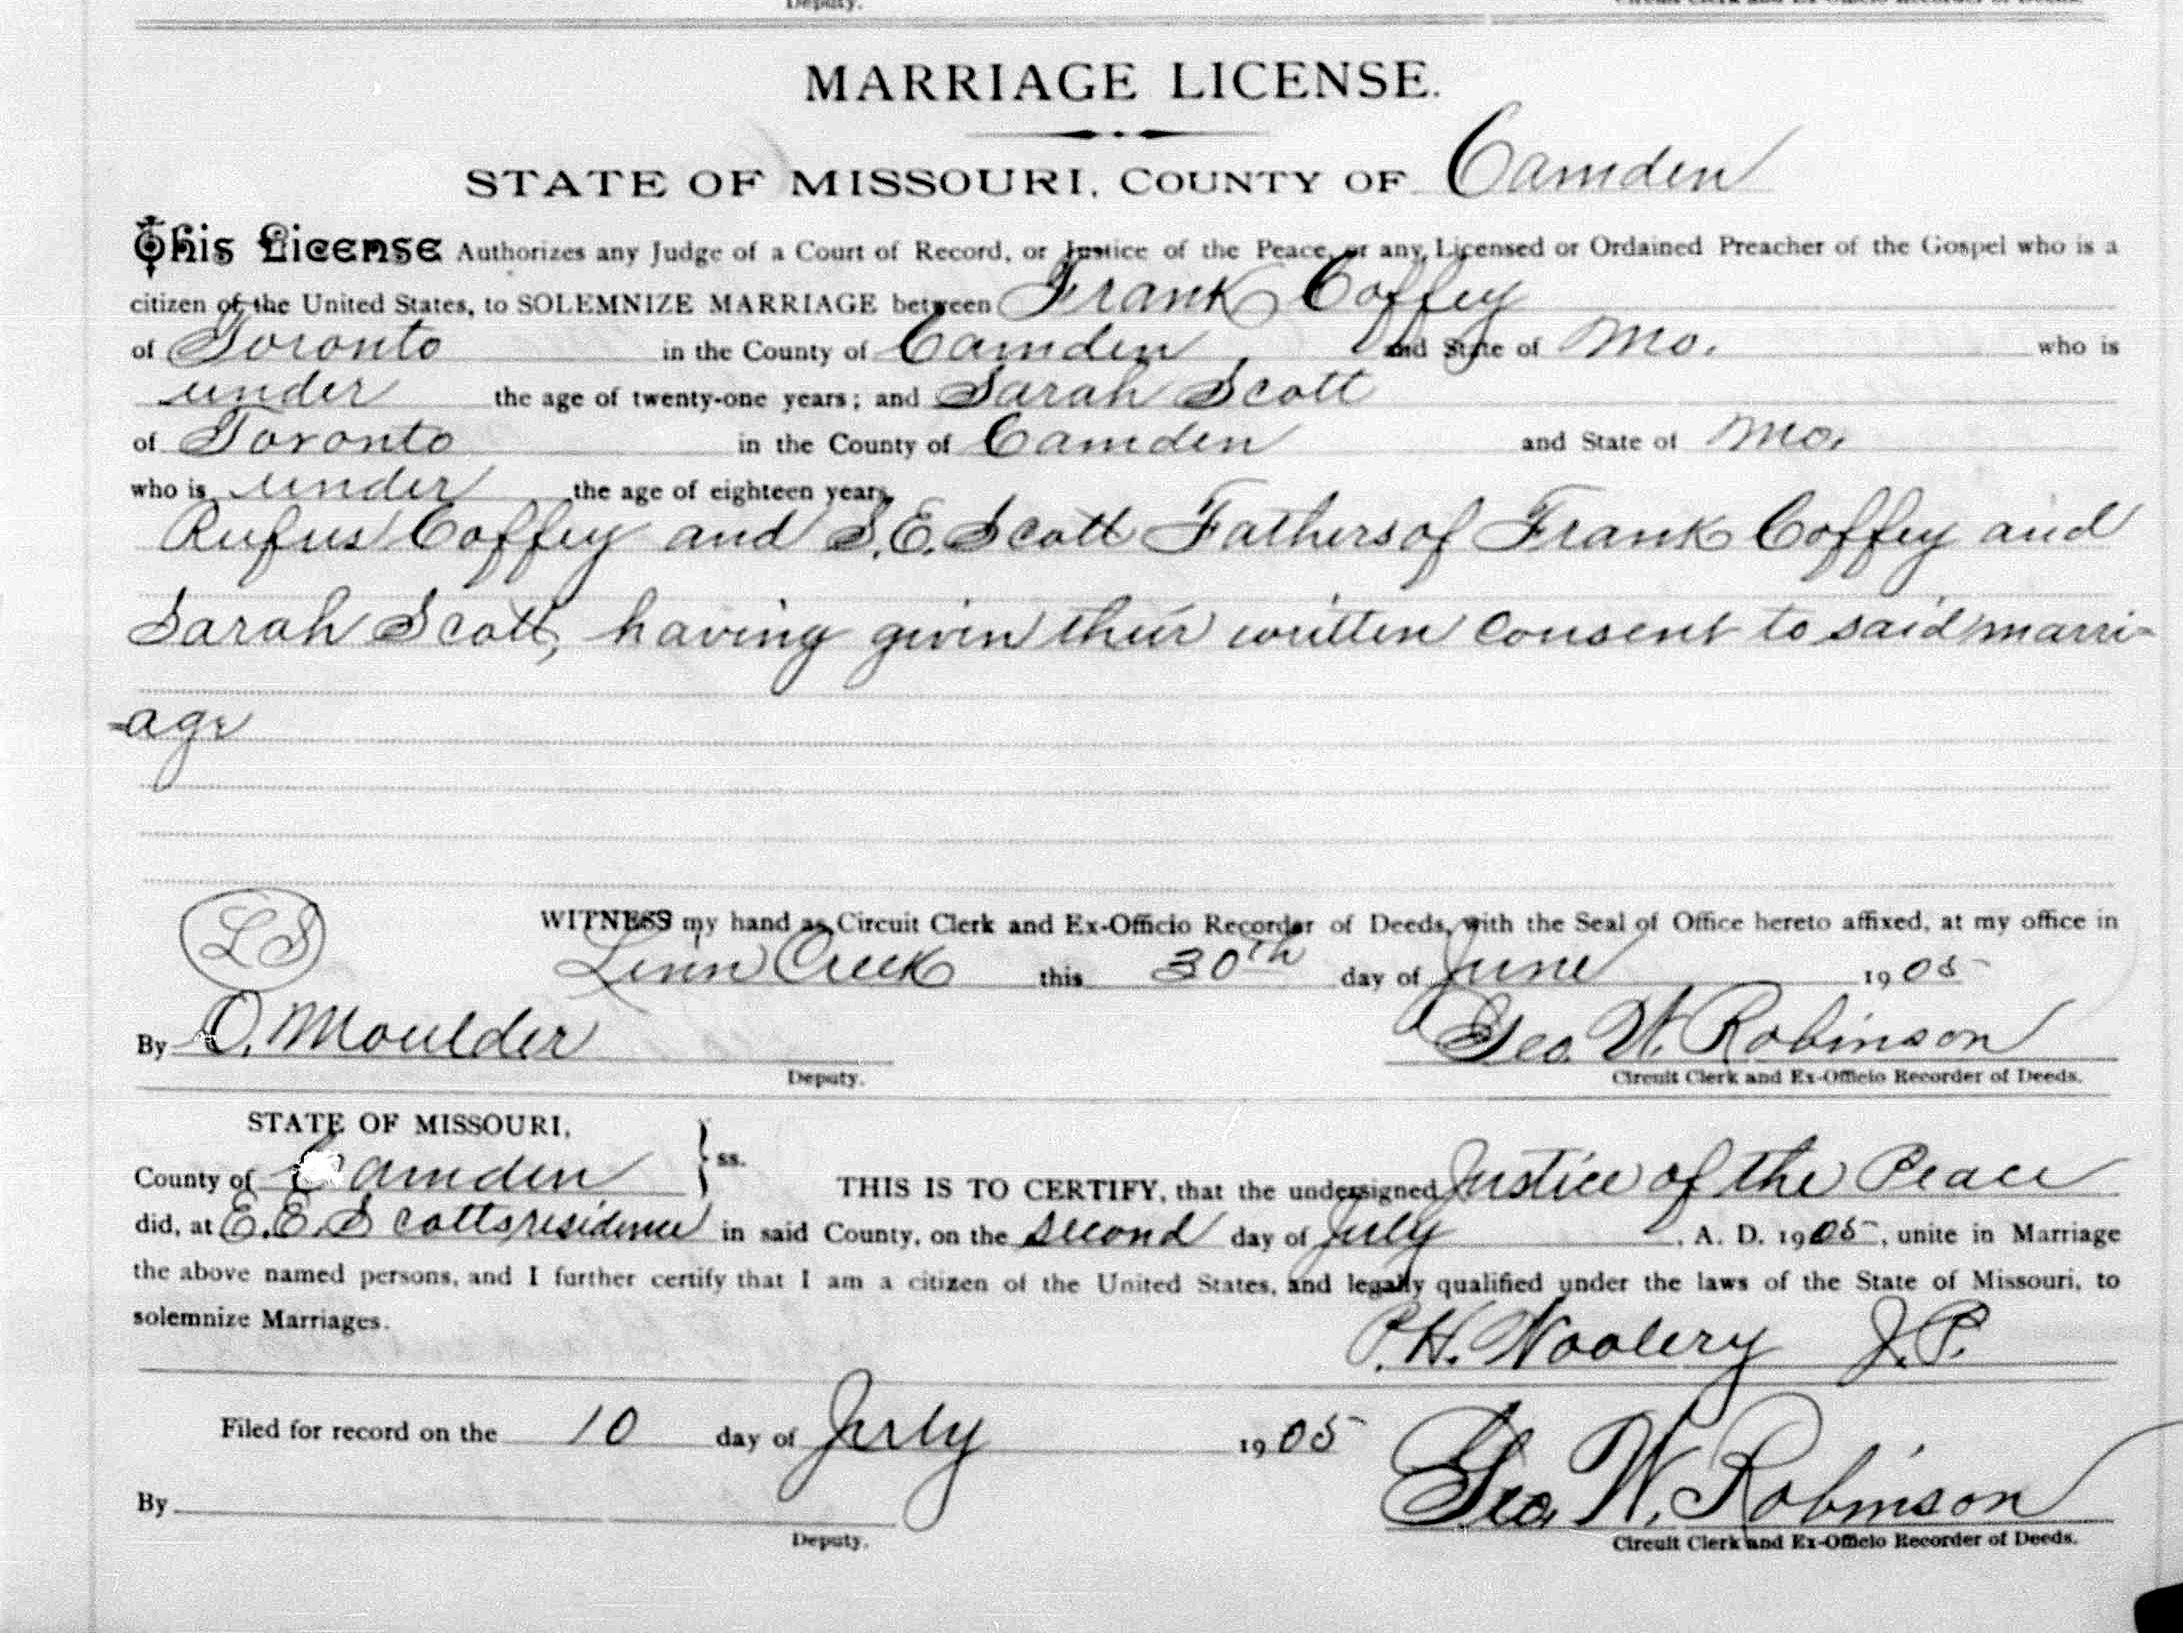 Deputy.
Circuit Clerk and Ex-Officio Recorder of Deeds.
MARRIAGE LICENSE.
STATE OF MISSOURI, COUNTY OF Camden
This License Authorizes any Judge of a Court of Record, or Justice of the Peace, or any Licensed or Ordained Preacher of the Gospel who is a
citizen of the United States, to SOLEMNIZE MARRIAGE between Frank Coffey
of Toronto in the County of Camden, and State of Mo. who is
under the age of twenty-one years; and Sarah Scott
of Toronto in the County of Camden and State of Mo.
who is under the age of eighteen years,
Rufus Coffey and S.E. Scott Fathers of Frank Coffey and
Sarah Scott, having given their written consent to said marri-
-age
L S
WITNESS my hand as Circuit Clerk and Ex-Officio Recorder of Deeds, with the Seal of Office hereto affixed, at my office in
Linn Creek this 30th day of June 1905
By O. Moulder Geo. W. Robinson
Deputy. Circuit Clerk and Ex-Officio Recorder of Deeds.
STATE OF MISSOURI,
County of Camden } ss. THIS IS TO CERTIFY, that the undersigned Justice of the Peace
did, at E.E. Scotts residence in said County, on the second day of July, A. D. 1905, unite in Marriage
the above named persons, and I further certify that I am a citizen of the United States, and legally qualified under the laws of the State of Missouri, to
solemnize Marriages.
P.H. Woolery J.P.
Filed for record on the 10 day of July 1905 Geo. W. Robinson
By
Deputy. Circuit Clerk and Ex-Officio Recorder of Deeds.